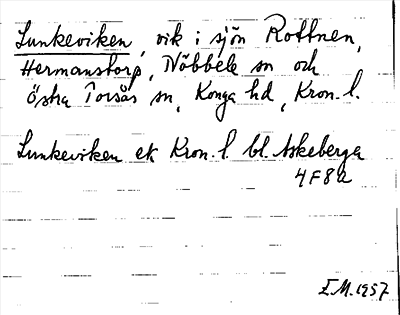 Lunkeviken, vik i sjön Rottnen,
Hermanstorp, Nöbbele sn och
Östra Torsås sn, Konga hd, Kron. l.
Lunkeviken ek Kron. l. bl. Askeberga
4F8a
E.M. 1957